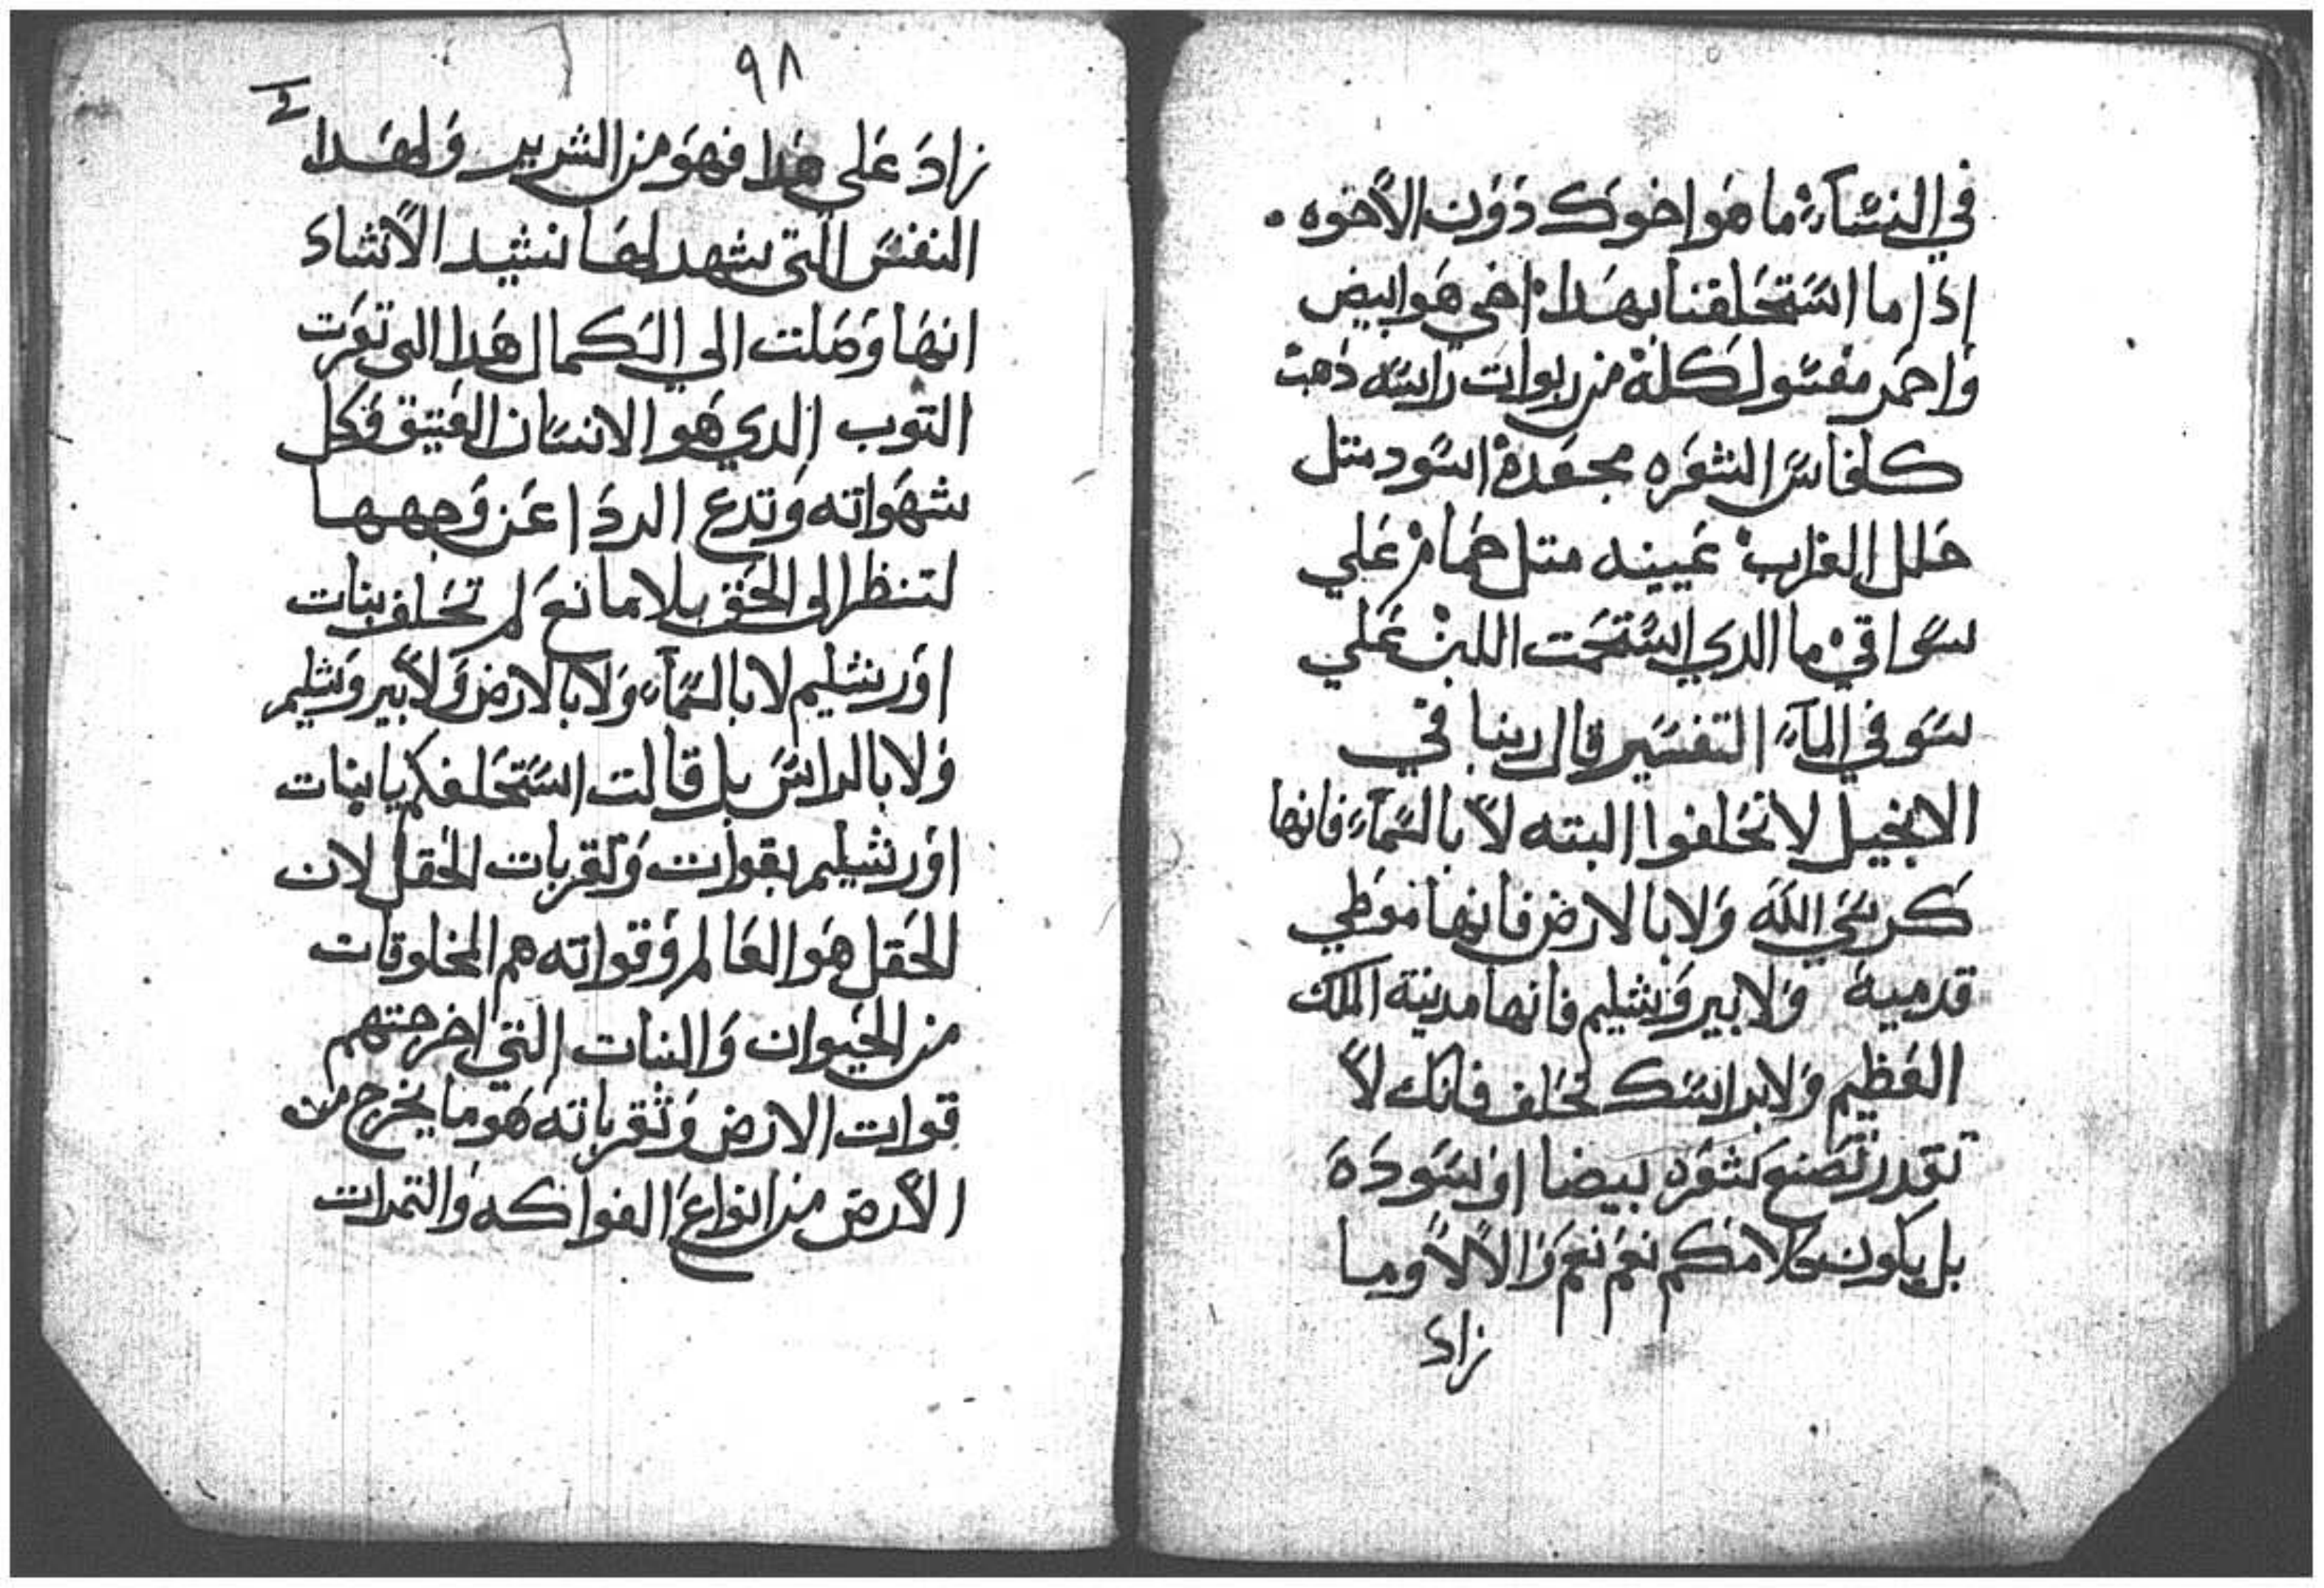 في النسَآءِ ما هَو اخوك دَوَن الاخوه .
اِذا ما استَحَلفتنا بهَدا اخي هَو ابيض
وَاحمَر مغسَول كلهْ من ربوات راسَه دَهبْ
كلفاسَ الشعَره مجعَدة اسَود متل
حَلل الغراب عَيينه متل حَمام عَلي
سَواقي ما الدي استحَمت اللبن عَلي
سَوفي المآء التفسَير قال ربنا في
الانجيل لا تحَلفوا البته لا بالسَمآء فانها
كرسَي اللَه وَلا بالارض فانها مَوطي
قدميهَ وَلا بيروَشليم فانها مدينة الملك
العَظيم وَلا براسَك تحَلف فانك لا
تقدر تصَنع شعَره بيضا اوَ سَودَهَ
بل يكون كلامكم نعَم نعَم وَالا لا وما
زاد
٩٨
زادَ عَلي هَدا فهوَ من الشرير وَلهَدا
النفسَ التي شهد لهَا نشيد الانشاد
انهَا وَصَلت الي الكمال هَدا التي تعَرت
التوب الدي هو الانسَان العَتيق وَكل
شهَواته وَتدع الردَا عَن وَجهها
لتنظر الى الحَق بلا مانعَ لم تحَلف بنات
اوَرشليم لا بالسَمآء وَلا بالارض وَلا بيروَشليم
وَلا بالراسَ بل قالت استَحَلفكم يا بنات
اوَرشليم بقوات وَثقربات الحَقل لان
الحَقل هَو العَالم وَقواته هم المخلوقات
من الحَيوان وَالنبات التي اخرجتهم
قوات الارض وَثقرباته هَو ما يخرج من
الارض من انواعَ الفواكه وَالتمرات